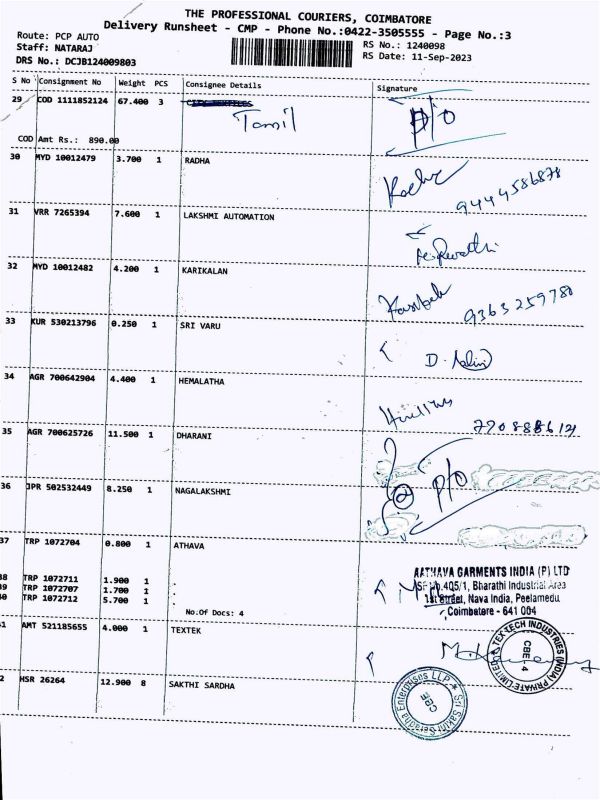 THE PROFESSIONAL COURIERS, COIMBATORE
Delivery Runsheet - CMP - Phone No.:0422-3505555 - Page No.:3
Route: PCP AUTO
Staff: NATARAJ
RS No.: 1240098
DRS No.: DCJB124009803
RS Date: 11-Sep-2023
S No Consignment No Weight PCS Consignee Details Signature
29 COD 1111852124 67.400 3
Tamil
P/O
COD Amt Rs.: 890.00
30 MYD 10012479 3.700 1 RADHA
9444586878
31 VRR 7265394 7.600 1 LAKSHMI AUTOMATION
32 MYD 10012482 4.200 1 KARIKALAN
9363259780
33 KUR 530213796 0.250 1 SRI VARU
34 AGR 700642904 4.400 1 HEMALATHA
35 AGR 700625726 11.500 1 DHARANI
36 JPR 502532449 8.250 1 NAGALAKSHMI
P/O
37 TRP 1072704 0.800 1 ATHAVA
AATHAVA GARMENTS INDIA (P) LTD
38 TRP 1072711 1.900 1 .
405/1, Bharathi Industrial Area
39 TRP 1072707 1.700 1 .
1st Street, Nava India, Peelamedu
40 TRP 1072712 5.700 1 .
Coimbatore - 641 004
No.Of Docs: 4
41 AMT 521185655 4.000 1 TEXTEK
TEX-TECH INDUSTRIES (INDIA) PRIVATE LIMITED
CBE - 4
42 HSR 26264 12.900 8 SAKTHI SARDHA
Sri Sakthi Saradha Enterprises LLP
CBE